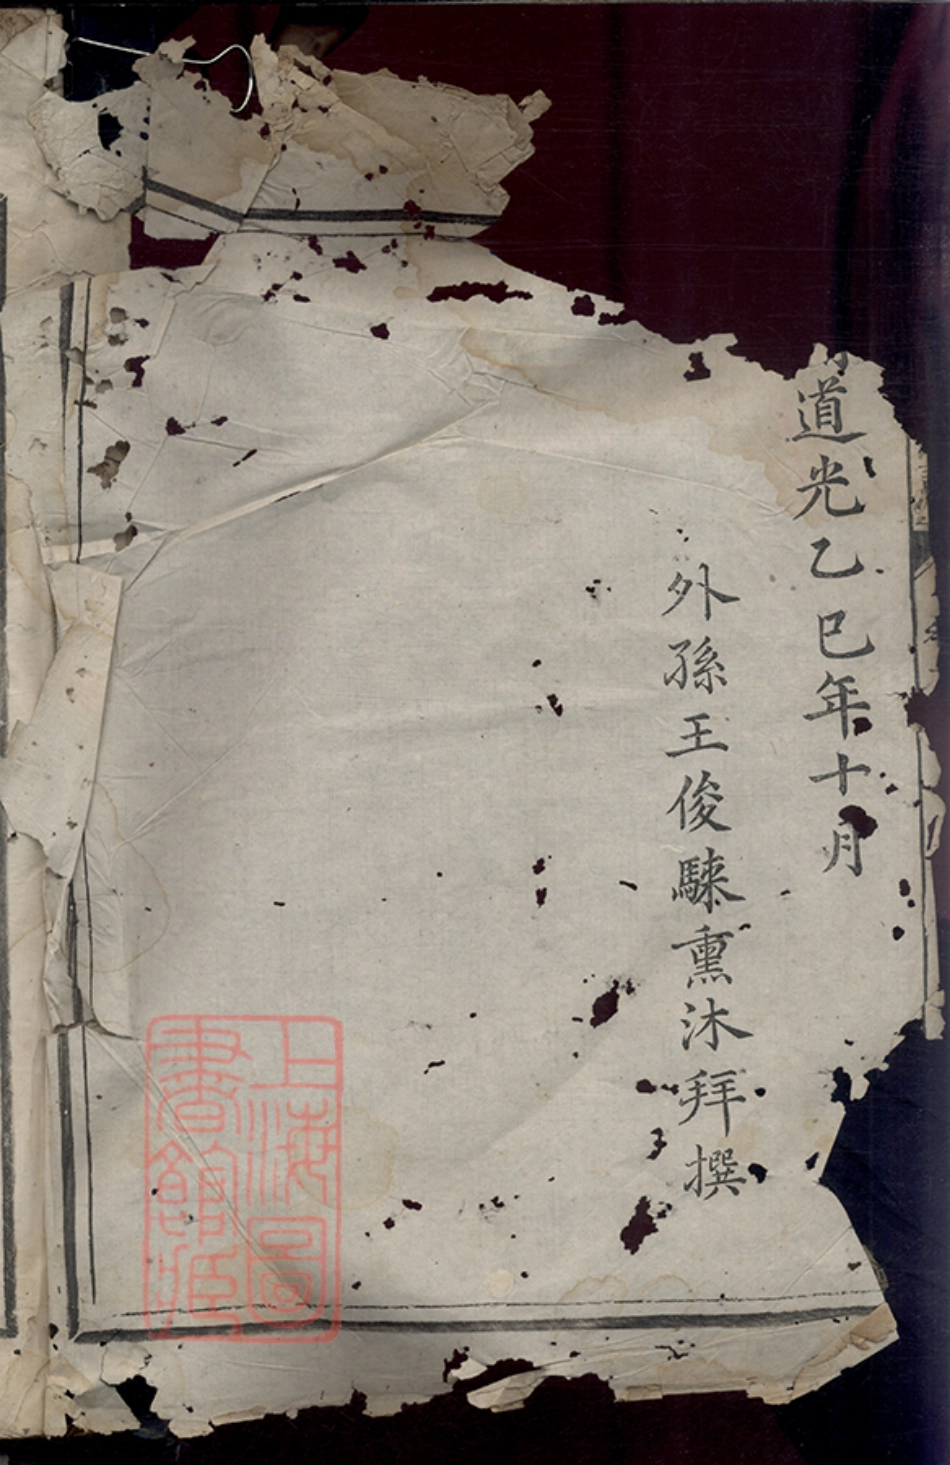 道光乙巳年十月
外孫王俊騋熏沐拜撰
上海圖
書館藏